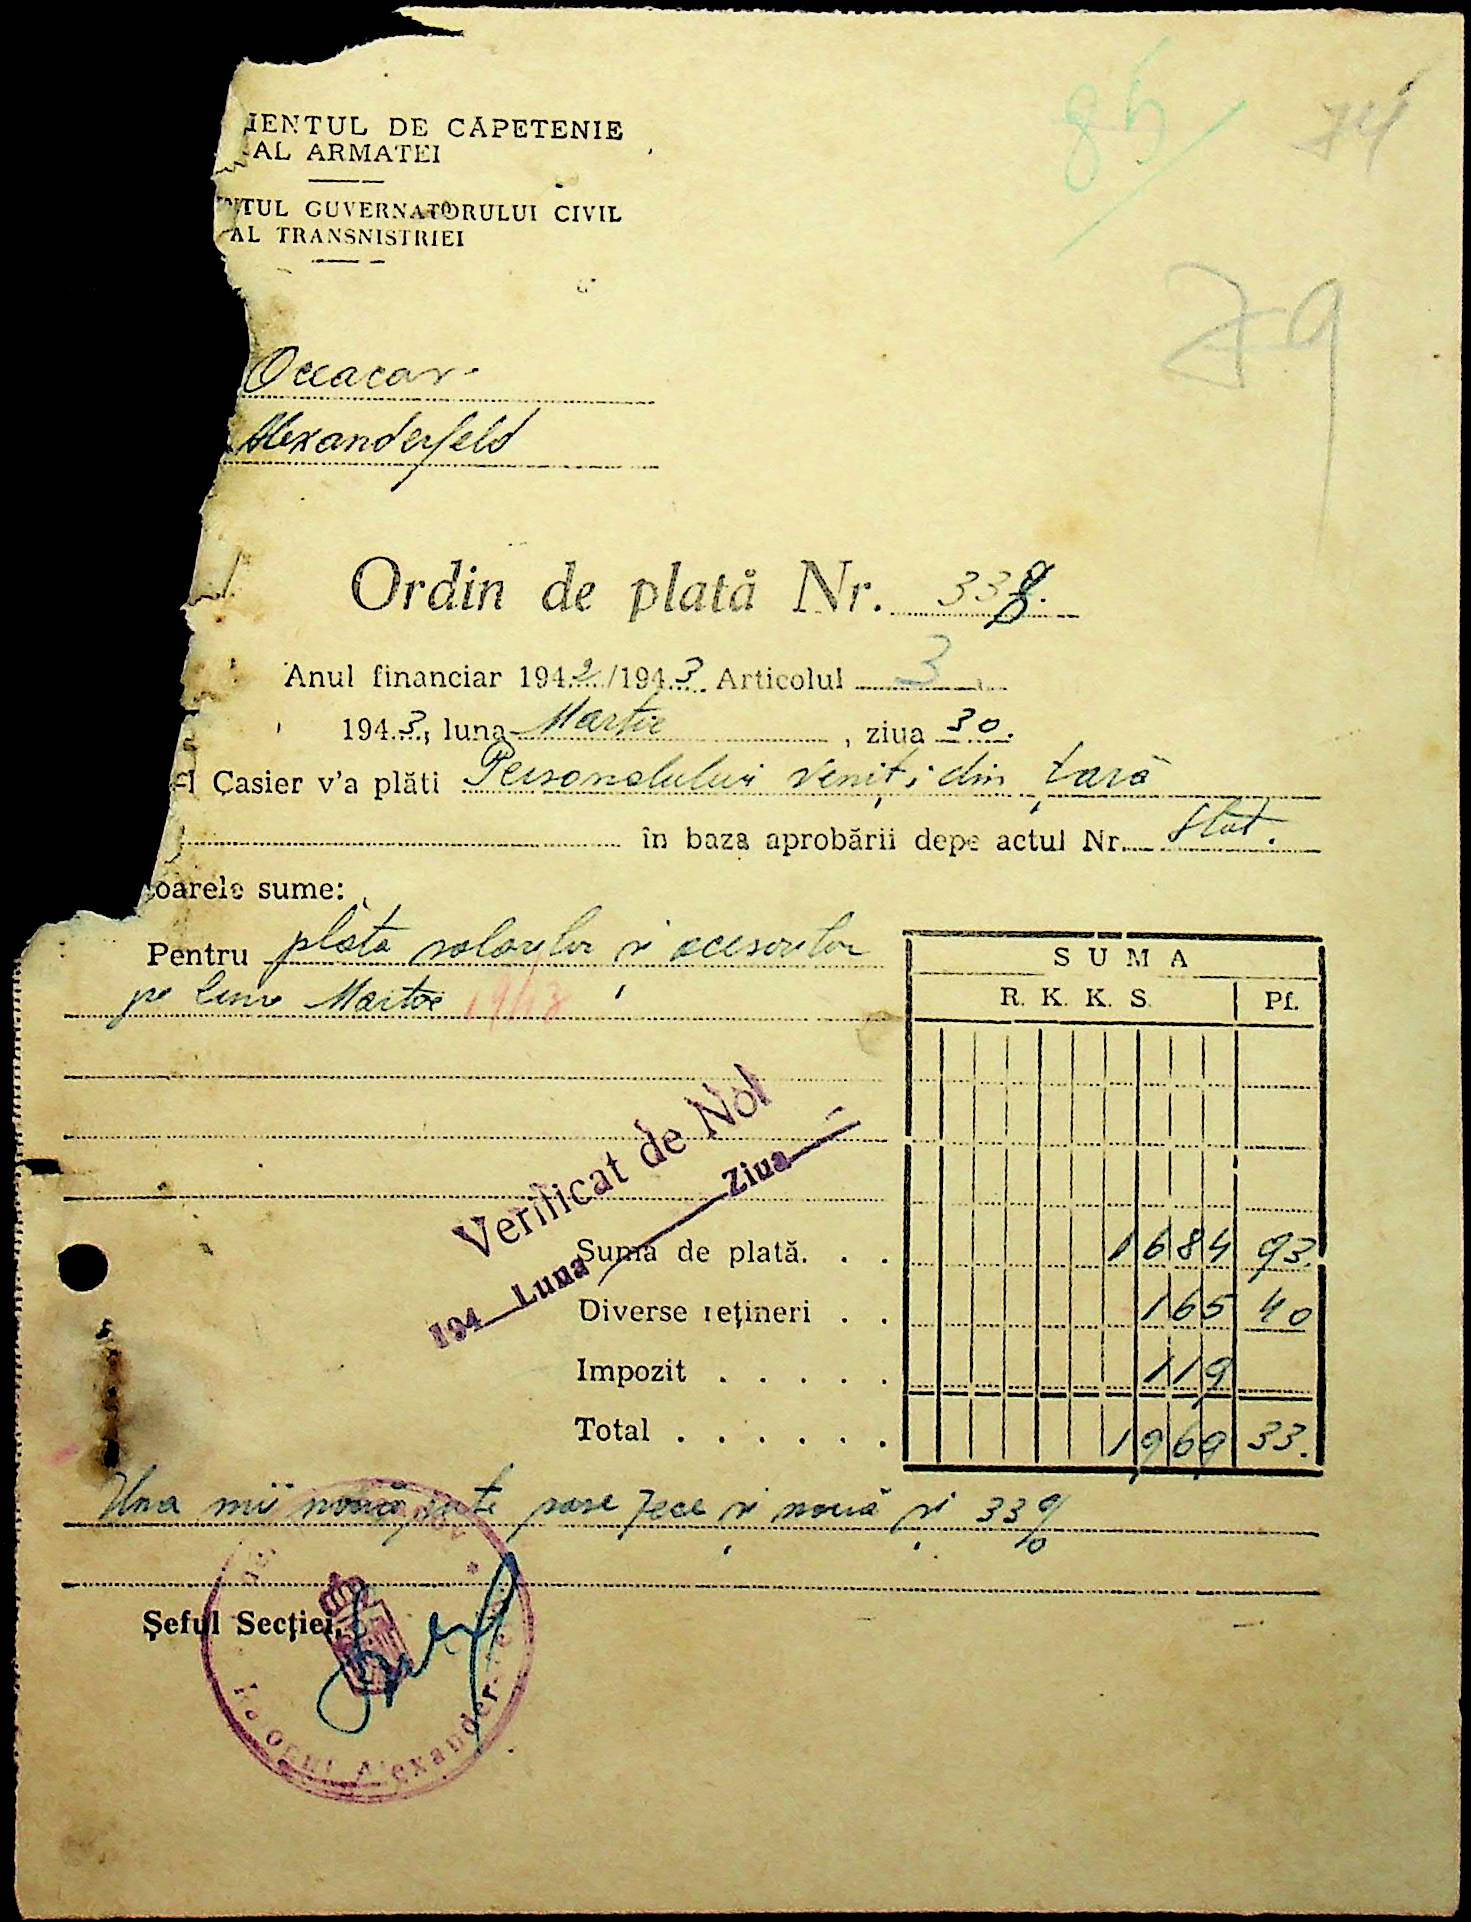 85
74
IENTUL DE CAPETENIE
AL ARMATEI
NTUL GUVERNATORULUI CIVIL
AL TRANSNISTRIEI
79
Oceacov
Alexanderfeld
Ordin de plată Nr. 338.
Anul financiar 1942/1943 Articolul 3
1943, luna Martie, ziua 30.
l Casier v'a plăti Personalului veniți din țară
în baza aprobării depe actul Nr. Stat.
oarele sume:
Pentru plata salariilor și accesoriilor
pe luna Martie 1943
SUMA
R. K. K. S. Pf.
Verificat de Noi
194 Luna Ziua
Suma de plată. . . 1684 93.
Diverse rețineri . . 165 40
Impozit . . . . . 119
Total . . . . . . 1969 33.
Una mii nouă sute șase zece și nouă și 33 %
Șeful Secției,
Raionul Alexander